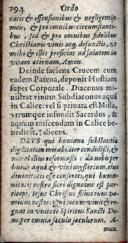 294 Ordo
eatis & offensionibus & negligentiis
meis, & pro omnibus circumstantibus:
sed & pro omnibus fidelibus
Christianis vivis atq; defunctis, ut
mihi & illis proficiat ad salutem in
vitam æternam, Amen.
Deinde faciens Crucem cum
eadem Patena, deponit Hostiam
super Corporale. Diaconus ministrat
vinum Subdiaconus aquam
in Calice: vel si privata est Missa,
utrumque infundit Sacerdos, &
aquam miscendam in Calice benedicit,
dicens.
DEUS qui humanæ substantiæ
dignitatem mirabiliter condidisti, &
mirabilius reformasti: da nobis per
hujus aquæ & vini mysterium, ejus
divinitatis esse consortes, qui humanitatis
nostræ fieri dignatus est particeps,
Jesus Christus filius tuus Dominus
noster: qui tecum vivit & regnat
in unitate Spiritus Sancti Deus
per omnia sæcula sæculorum,